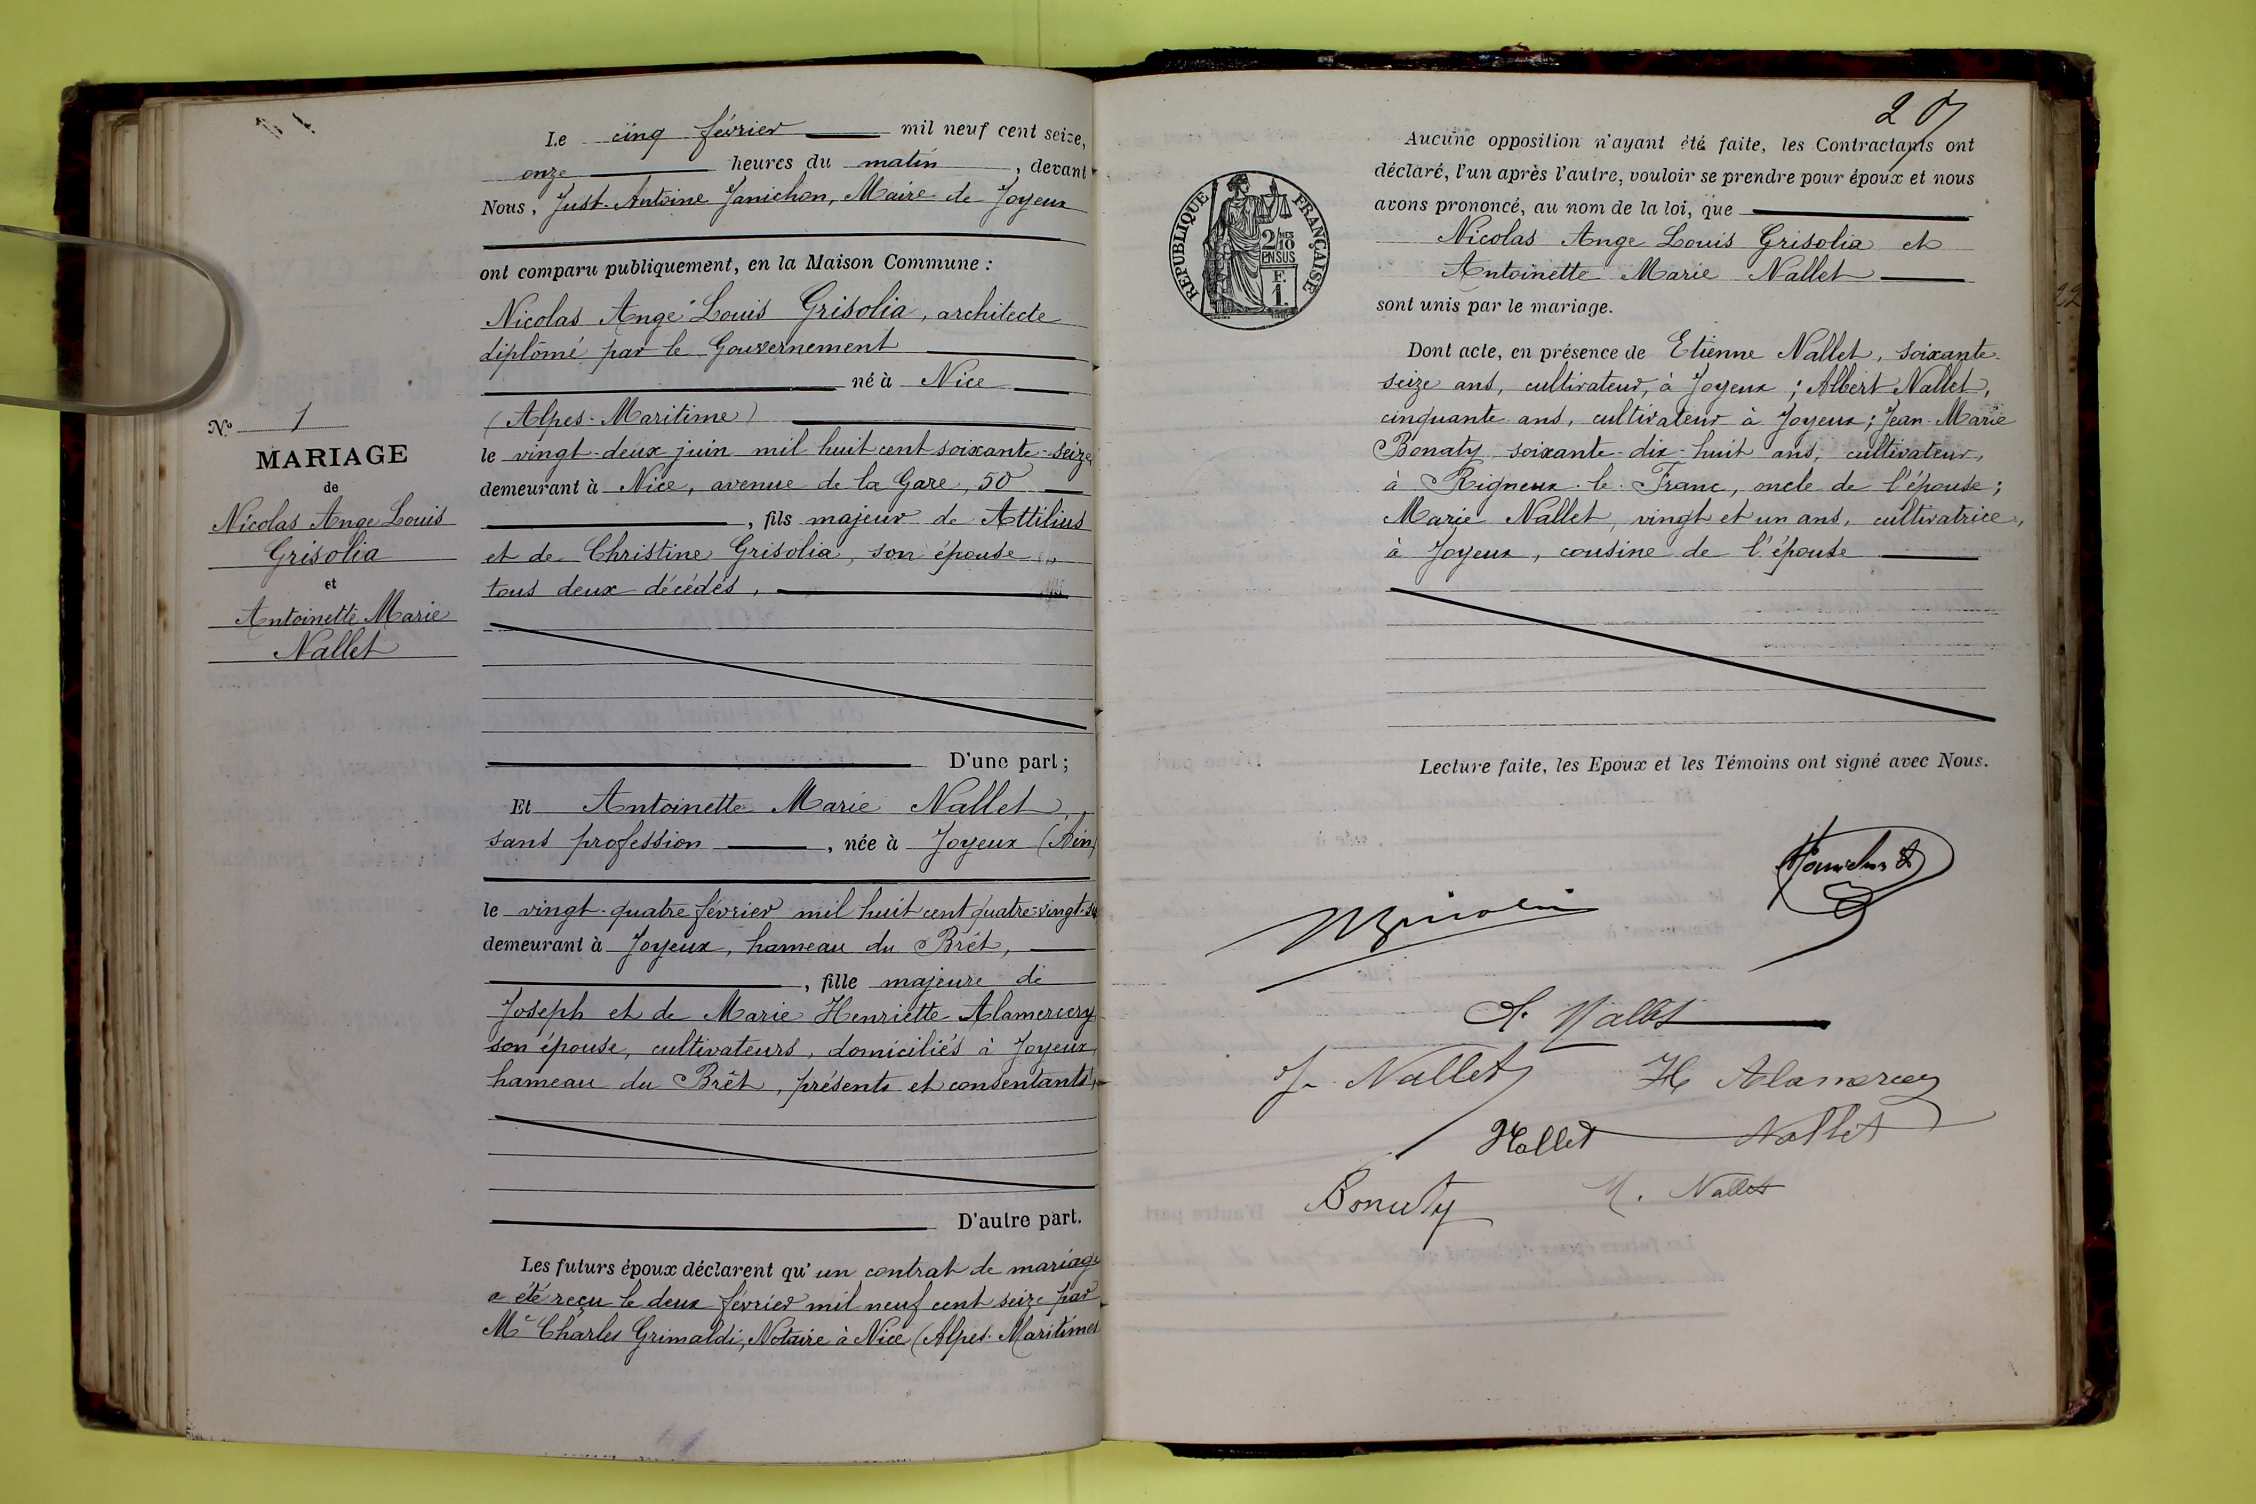 N.º 1
MARIAGE
de
Nicolas Ange Louis
Grisolia
et
Antoinette Marie
Nallet
Le cinq février mil neuf cent seize,
onze heures du matin, devant
Nous, Just-Antoine Janichon, Maire de Joyeux
ont comparu publiquement, en la Maison Commune :
Nicolas Ange Louis Grisolia, architecte
diplômé par le Gouvernement
né à Nice
(Alpes-Maritime)
le vingt-deux juin mil huit cent soixante-seize
demeurant à Nice, avenue de la Gare, 50
, fils majeur de Attilius
et de Christine Grisolia, son épouse
tous deux décédés,
D'une part ;
Et Antoinette Marie Nallet,
sans profession, née à Joyeux (Ain)
le vingt-quatre février mil huit cent quatre-vingt-six
demeurant à Joyeux, hameau du Brêt,
, fille majeure de
Joseph et de Marie Henriette Alamercery
son épouse, cultivateurs, domiciliés à Joyeux,
hameau du Brêt, présents et consentants,
D'autre part.
Les futurs époux déclarent qu'un contrat de mariage
a été reçu le deux février mil neuf cent seize par
Me Charles Grimaldi, Notaire à Nice (Alpes-Maritimes
20
RÉPUBLIQUE FRANÇAISE
2/10MES
EN SUS
F.
1.
Aucune opposition n'ayant été faite, les Contractants ont
déclaré, l'un après l'autre, vouloir se prendre pour époux et nous
avons prononcé, au nom de la loi, que
Nicolas Ange Louis Grisolia et
Antoinette Marie Nallet
sont unis par le mariage.
Dont acte, en présence de Etienne Nallet, soixante-
seize ans, cultivateur, à Joyeux ; Albert Nallet,
cinquante ans, cultivateur à Joyeux ; Jean-Marie
Bonaty soixante-dix-huit ans, cultivateur,
à Rigneux-le-Franc, oncle de l'épouse ;
Marie Nallet, vingt et un ans, cultivatrice,
à Joyeux, cousine de l'épouse
Lecture faite, les Epoux et les Témoins ont signé avec Nous.
A. Nallet
J. Nallet H Alamercery
Nallet Nallet
Bonaty M. Nallet
22